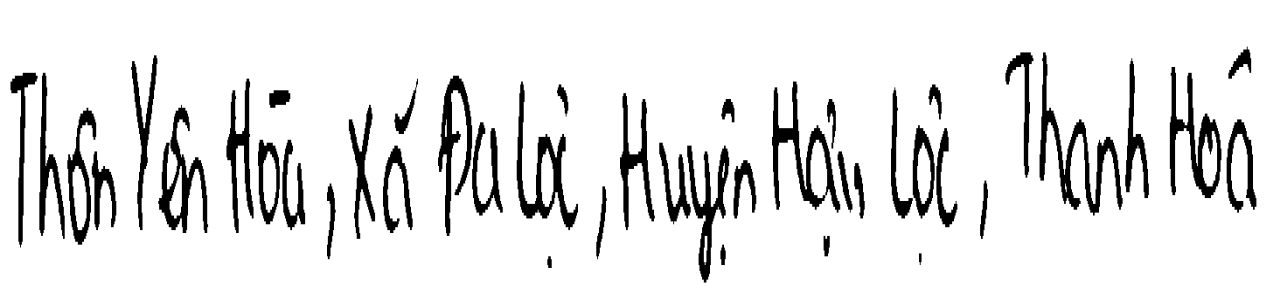 Thôn Yên Hòa, Xã Đa Lộc, Huyện Hậu Lộc, Thanh Hoá